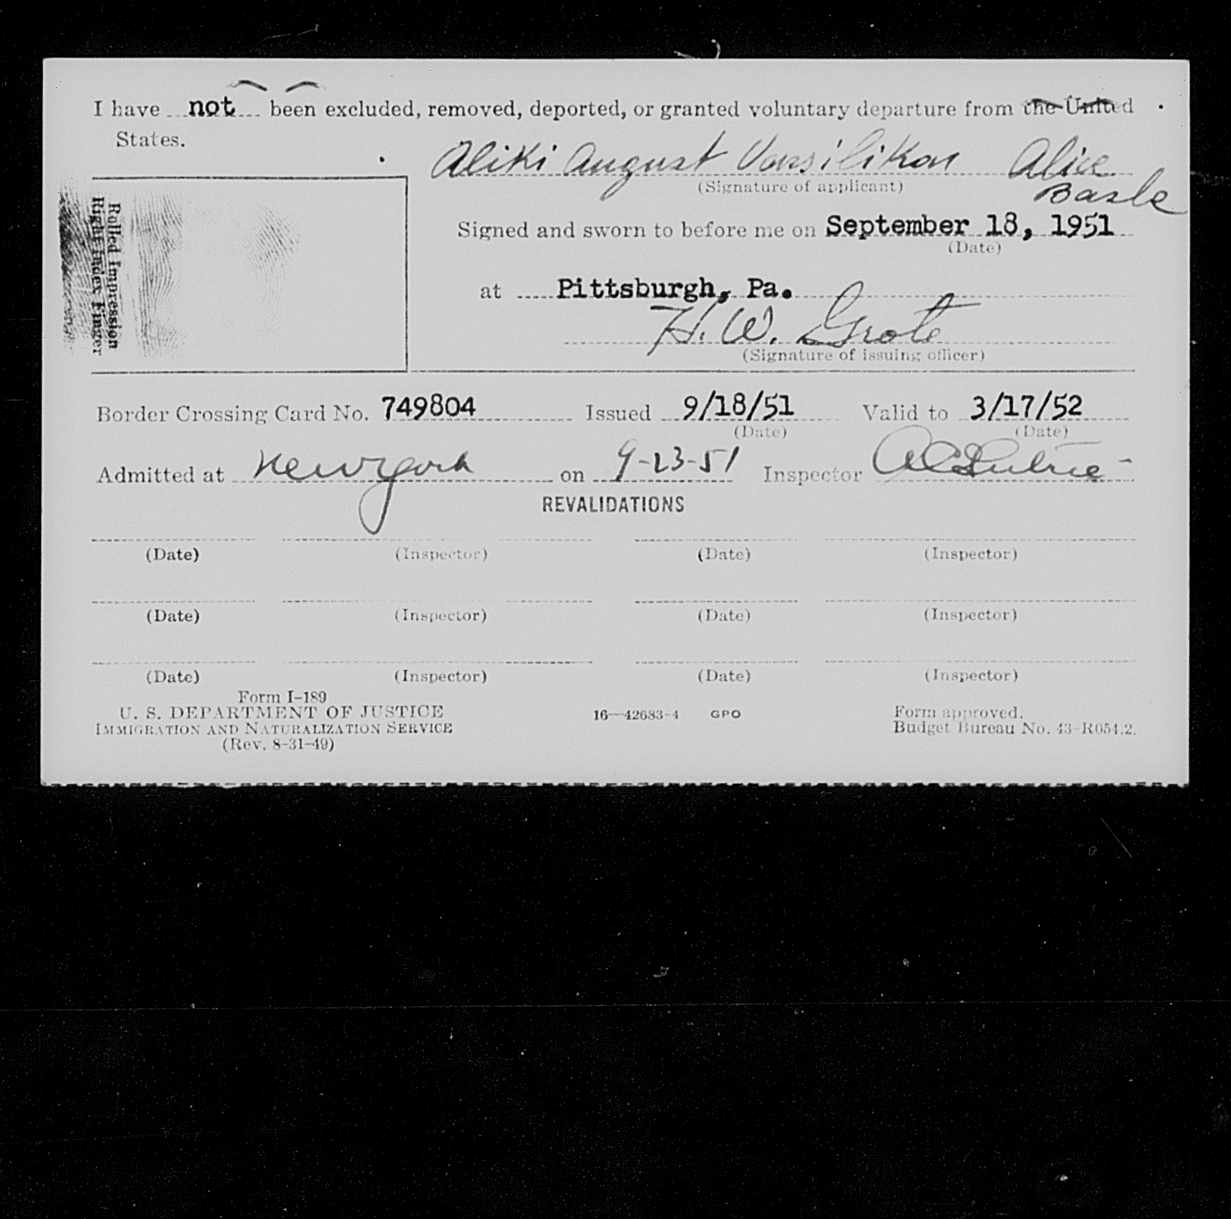 I have not been excluded, removed, deported, or granted voluntary departure from the United
States.
Aliki August Vassilikon Alice
Basle
(Signature of applicant)
Rolled Impression
Right Index Finger
Signed and sworn to before me on September 18, 1951
(Date)
at Pittsburgh, Pa.
H. W. Grote
(Signature of issuing officer)
Border Crossing Card No. 749804 Issued 9/18/51 Valid to 3/17/52
(Date) (Date)
Admitted at New York on 9-23-51 Inspector
REVALIDATIONS
(Date) (Inspector) (Date) (Inspector)
(Date) (Inspector) (Date) (Inspector)
(Date) (Inspector) (Date) (Inspector)
Form I-189
U. S. DEPARTMENT OF JUSTICE 16—42683-4 GPO Form approved.
IMMIGRATION AND NATURALIZATION SERVICE Budget Bureau No. 43-R054.2.
(Rev. 8-31-49)